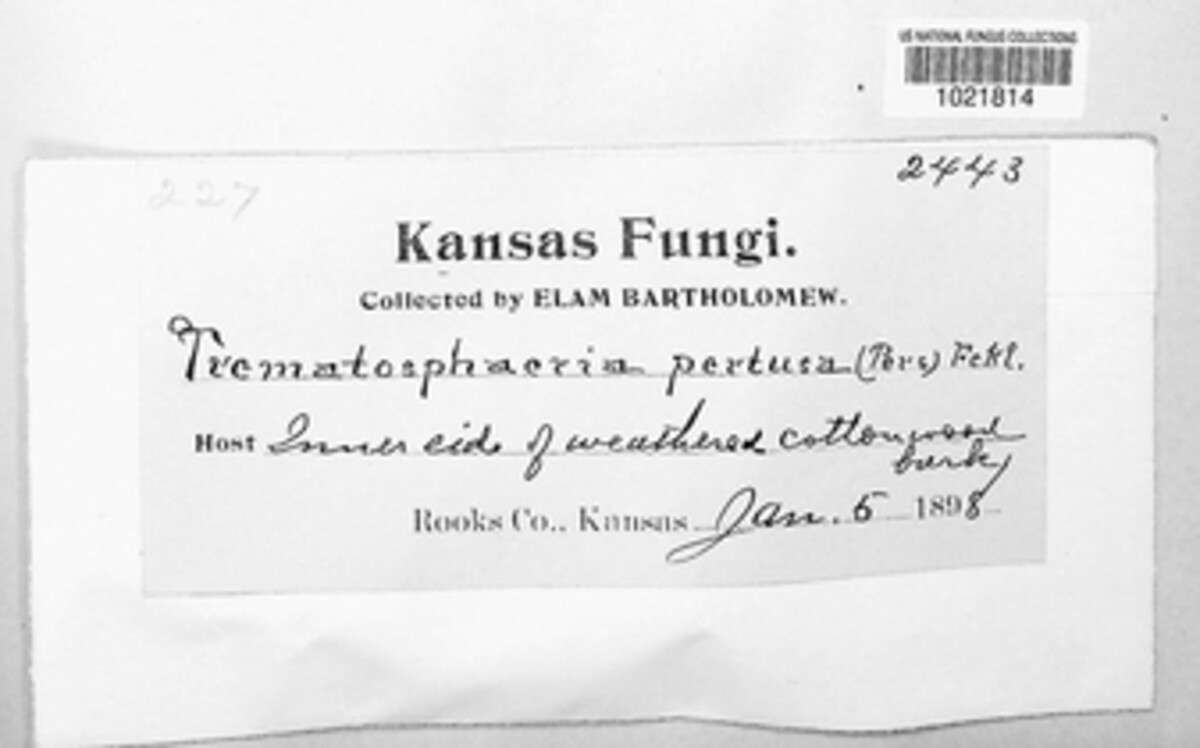 US NATIONAL FUNGUS COLLECTIONS
1021814
227
2443
Kansas Fungi.
Collected by ELAM BARTHOLOMEW.
Trematosphaeria pertusa (Pers) Fckl.
Host Inner side of weathered cottonwood
bark
Rooks Co., Kansas Jan. 5 1898